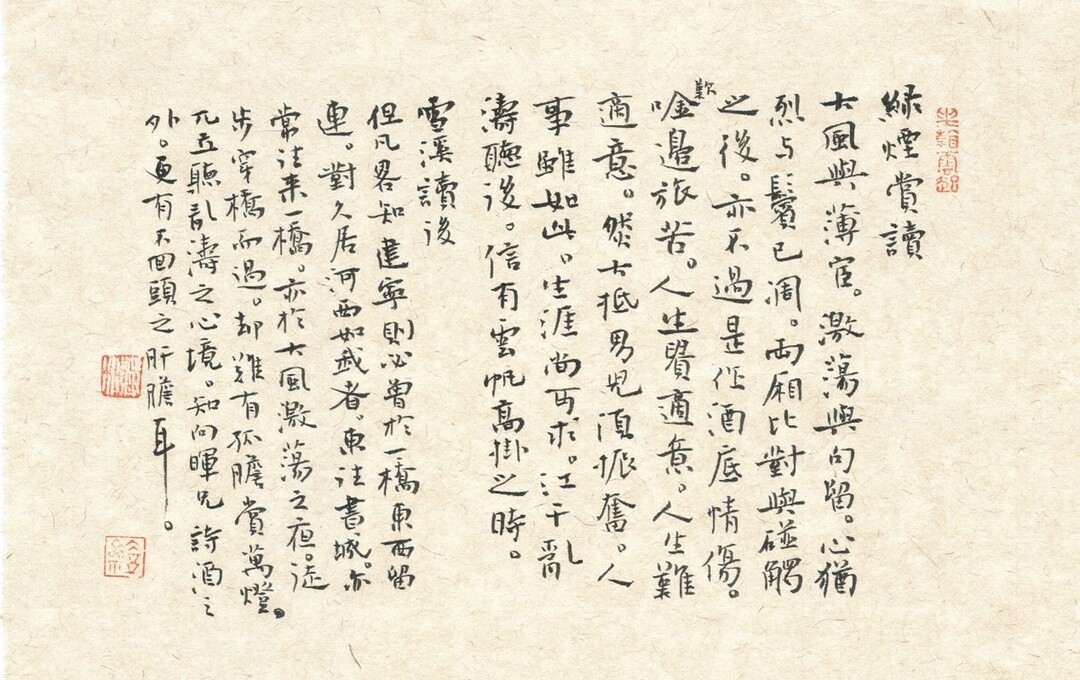 綠煙賞讀
大風與薄宦。激蕩與句留。心猶
烈与鬢已凋。両厢比對與碰觸
之後。亦不過是任酒底情傷。
唫邊旅苦。人生貴適意。人生難
歎
適意。然大抵男兒須振奮。人
事雖如此。生涯尚可求。江干亂
濤聽後。信有雲帆高掛之時。
雪溪讀後
但凡畧知建寧則必曾於一橋東西留
連。對久居河西如我者。東往書城。亦
常往来一橋。亦於大風激蕩之夜。徒
步穿橋而過。却難有孤膽賞萬燈。
兀立聽亂濤之心境。知向暉兄詩酒之
外。更有不回頭之肝膽耳。